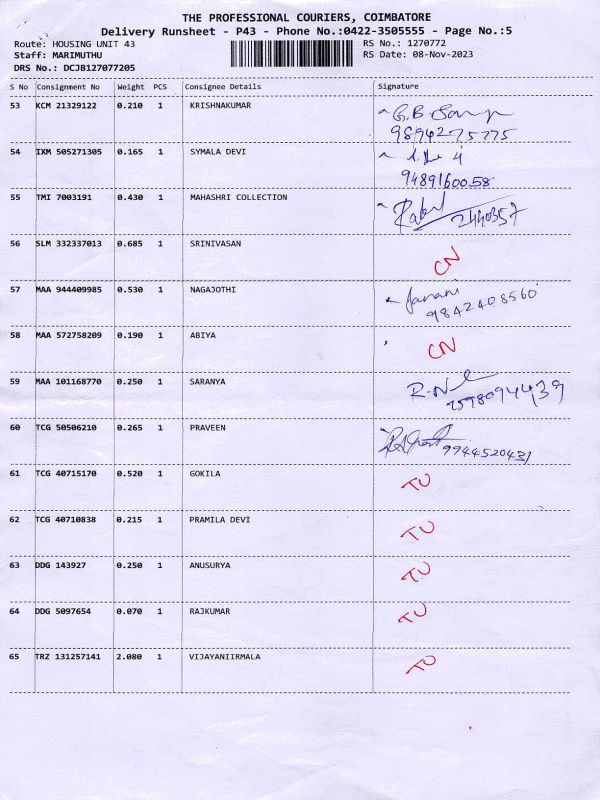 THE PROFESSIONAL COURIERS, COIMBATORE
Delivery Runsheet - P43 - Phone No.:0422-3505555 - Page No.:5
Route: HOUSING UNIT 43 RS No.: 1270772
Staff: MARIMUTHU RS Date: 08-Nov-2023
DRS No.: DCJB127077205
S No Consignment No Weight PCS Consignee Details Signature
53 KCM 21329122 0.210 1 KRISHNAKUMAR G.B
9894275775
54 IXM 505271305 0.165 1 SYMALA DEVI
9489160058
55 TMI 7003191 0.430 1 MAHASHRI COLLECTION
2440357
56 SLM 332337013 0.685 1 SRINIVASAN CN
57 MAA 944409985 0.530 1 NAGAJOTHI Janani
9842408560
58 MAA 572758209 0.190 1 ABIYA CN
59 MAA 101168770 0.250 1 SARANYA
7598094439
60 TCG 50506210 0.265 1 PRAVEEN 9944520431
61 TCG 40715170 0.520 1 GOKILA TU
62 TCG 40710838 0.215 1 PRAMILA DEVI TU
63 DDG 143927 0.250 1 ANUSURYA TU
64 DDG 5097654 0.070 1 RAJKUMAR TU
65 TRZ 131257141 2.080 1 VIJAYANIIRMALA TU